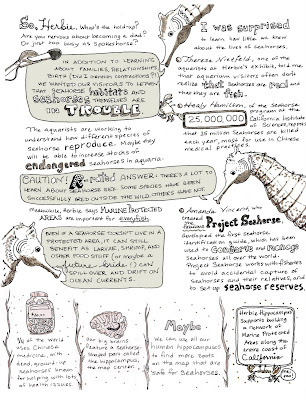 So, Herbie, What's the hold-up?
Are you nervous about becoming a dad?
Or just too busy as Spokeshorse?
IN ADDITION TO LEARNING
ABOUT FAMILIES, RELATIONSHIPS,
BIRTH (DID I MENTION CONTRACTIONS?)
WE WANTED OUR VISITORS TO REPEAT
THAT SEAHORSE habitats &
seahorses THEMSELVES ARE
IN TROUBLE
"The aquarists are working to
understand how different species of
Seahorse reproduce. Maybe they
will be able to increase stocks of
endangered seahorses in aquaria.
CAUTION! A-rated ANSWER: THERE'S A LOT TO
LEARN ABOUT SEAHORSE SEX. SOME SPECIES HAVE BEEN
SUCCESSFULLY BRED OUTSIDE THE WILD; OTHERS HAVE NOT.
Meanwhile, Herbie says MARINE PROTECTED
AREAS are important for everyfish.
EVEN IF A SEAHORSE DOESN'T LIVE IN A
PROTECTED AREA, IT CAN STILL
BENEFIT AS LARVAE, SHRIMP, AND
OTHER FOOD STUFF (or maybe a
future bride!) CAN
SPILL OVER AND DRIFT ON
OCEAN CURRENTS.
I was surprised
to learn how little we
know about the lives of seahorses.
Theresa Nietfeld, one of the
aquarists at Herbie's exhibit, told me
that aquarium visitors often don't
realize that seahorses are real and
that they are fish.
Healy Hamilton, of the Seahorse
program of the
25,000,000
California Institute
of Sciences, reports
that 25 million seahorses are killed
each year, most for use in Chinese
medical practices.
Amanda Vincent, who
Project Seahorse,
developed the first seahorse
identification guide, which has been
used to Conserve and manage
seahorses all over the world.
Project Seahorse works with fishers
to avoid accidental capture of
seahorses and their relatives, and
to set up seahorse reserves.
¼ of the world
uses Chinese
medicine, with
dead, ground-up
seahorses known
for helping with lots
of health issues.
Our big brains
feature a seahorse-
shaped part called
the hippocampus,
the map center.
Maybe
We can use all our
human hippocampi
to find more spots
on the map that are
safe for Seahorses.
Herbie Hippocampus
Supports building
a network of
Marine Protected
Areas along the
entire coast of
California